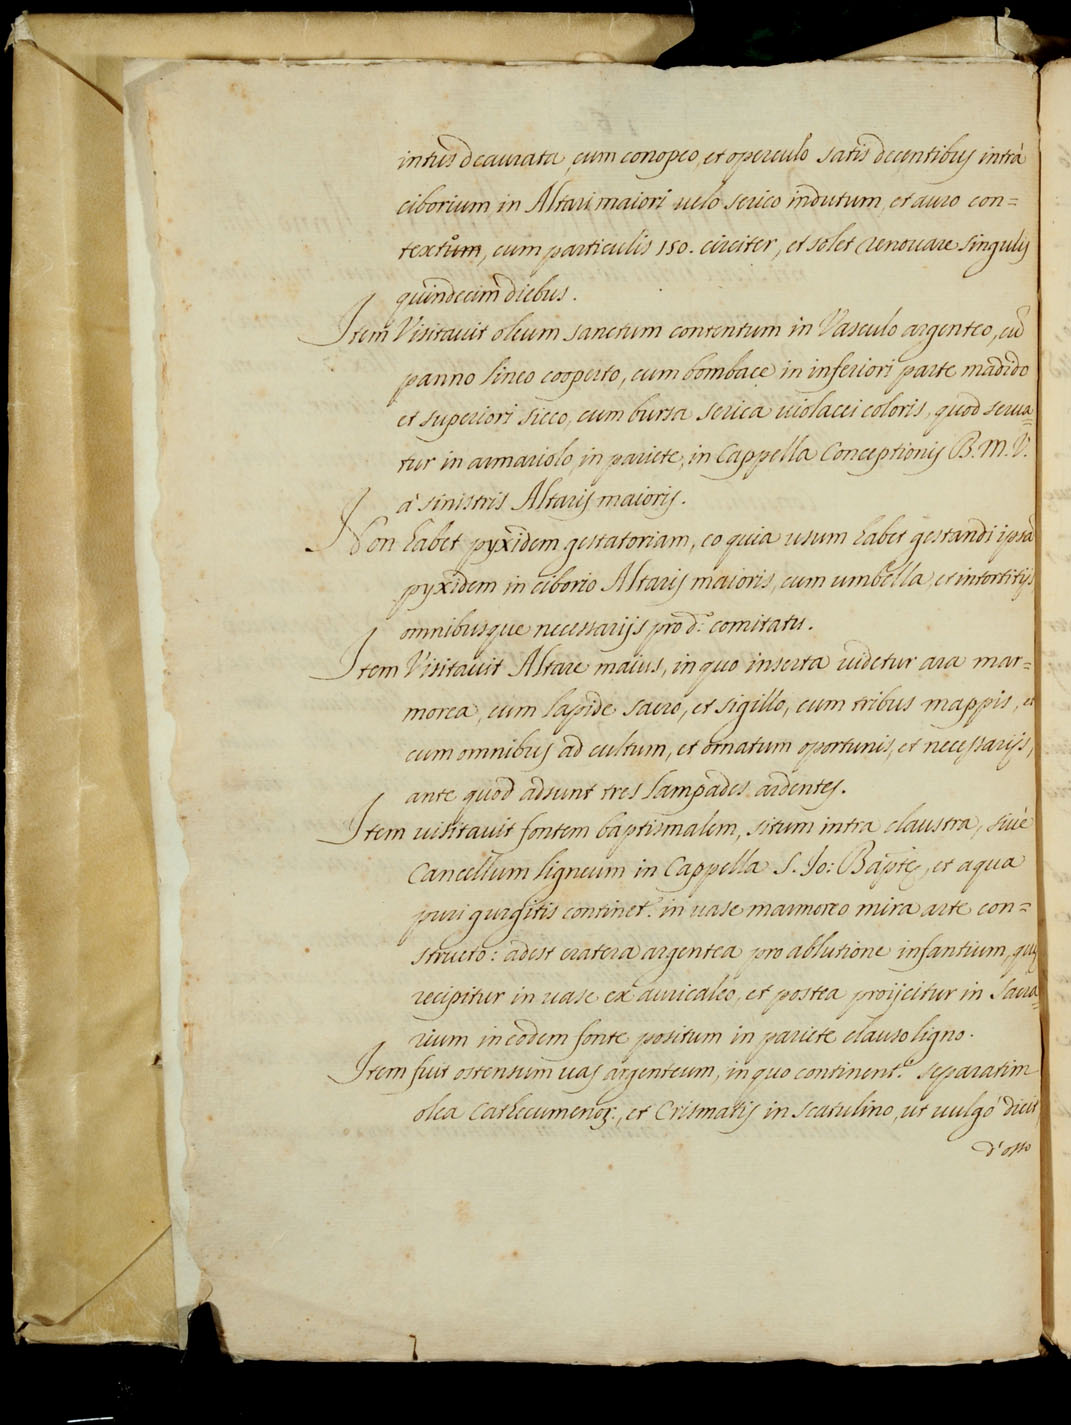 intus deaurata, cum conopeo, et operculo satis decentibus intrà
ciborium in Altari maiori uelo serico indutum, et auro con=
textum, cum particulis 150. circiter, et solet renouare singulis
quindecim diebus.
Item Visitauit oleum sanctum contentum in Vasculo argenteo, cũ
panno lineo cooperto, cum bombace in inferiori parte madido
et superiori sicco, cum bursa serica uiolacei coloris, quod serua=
tur in armariolo, in pariete, in Cappella Conceptionis B. M. V.
à sinistris Altaris maioris.
Non habet pyxidem gestatoriam, eo quia usum habet gestandi ipsã
pyxidem in ciborio Altaris maioris, cum umbella, et intortitijs
omnibusque necessarijs pro d.º comitatu.
Item Visitauit Altare maius, in quo inserta uidetur ara mar=
morea, cum lapide sacro, et sigillo, cum tribus mappis, et
cum omnibus ad cultum, et ornatum oportunis, et necessarijs,
ante quod adsunt tres lampades ardentes.
Item uisitauit fontem baptismalem, situm intra claustra, siuè
Cancellum ligneum in Cappella S. Jo: Baptę, et aqua
puri gurgitis continet.r in uase marmoreo mira arte con=
structo: adest cratera argentea pro ablutione infantium, quę
recipitur in uase ex auricalco, et postea proijcitur in Sacra=
rium in eodem fonte positum in pariete clauso ligno.
Item fuit ostensum uas argenteum, in quo continent.r separatim
olea Cathecumenoꝝ:, et Crismatis in scatulino, ut uulgò dicit,
d'osso